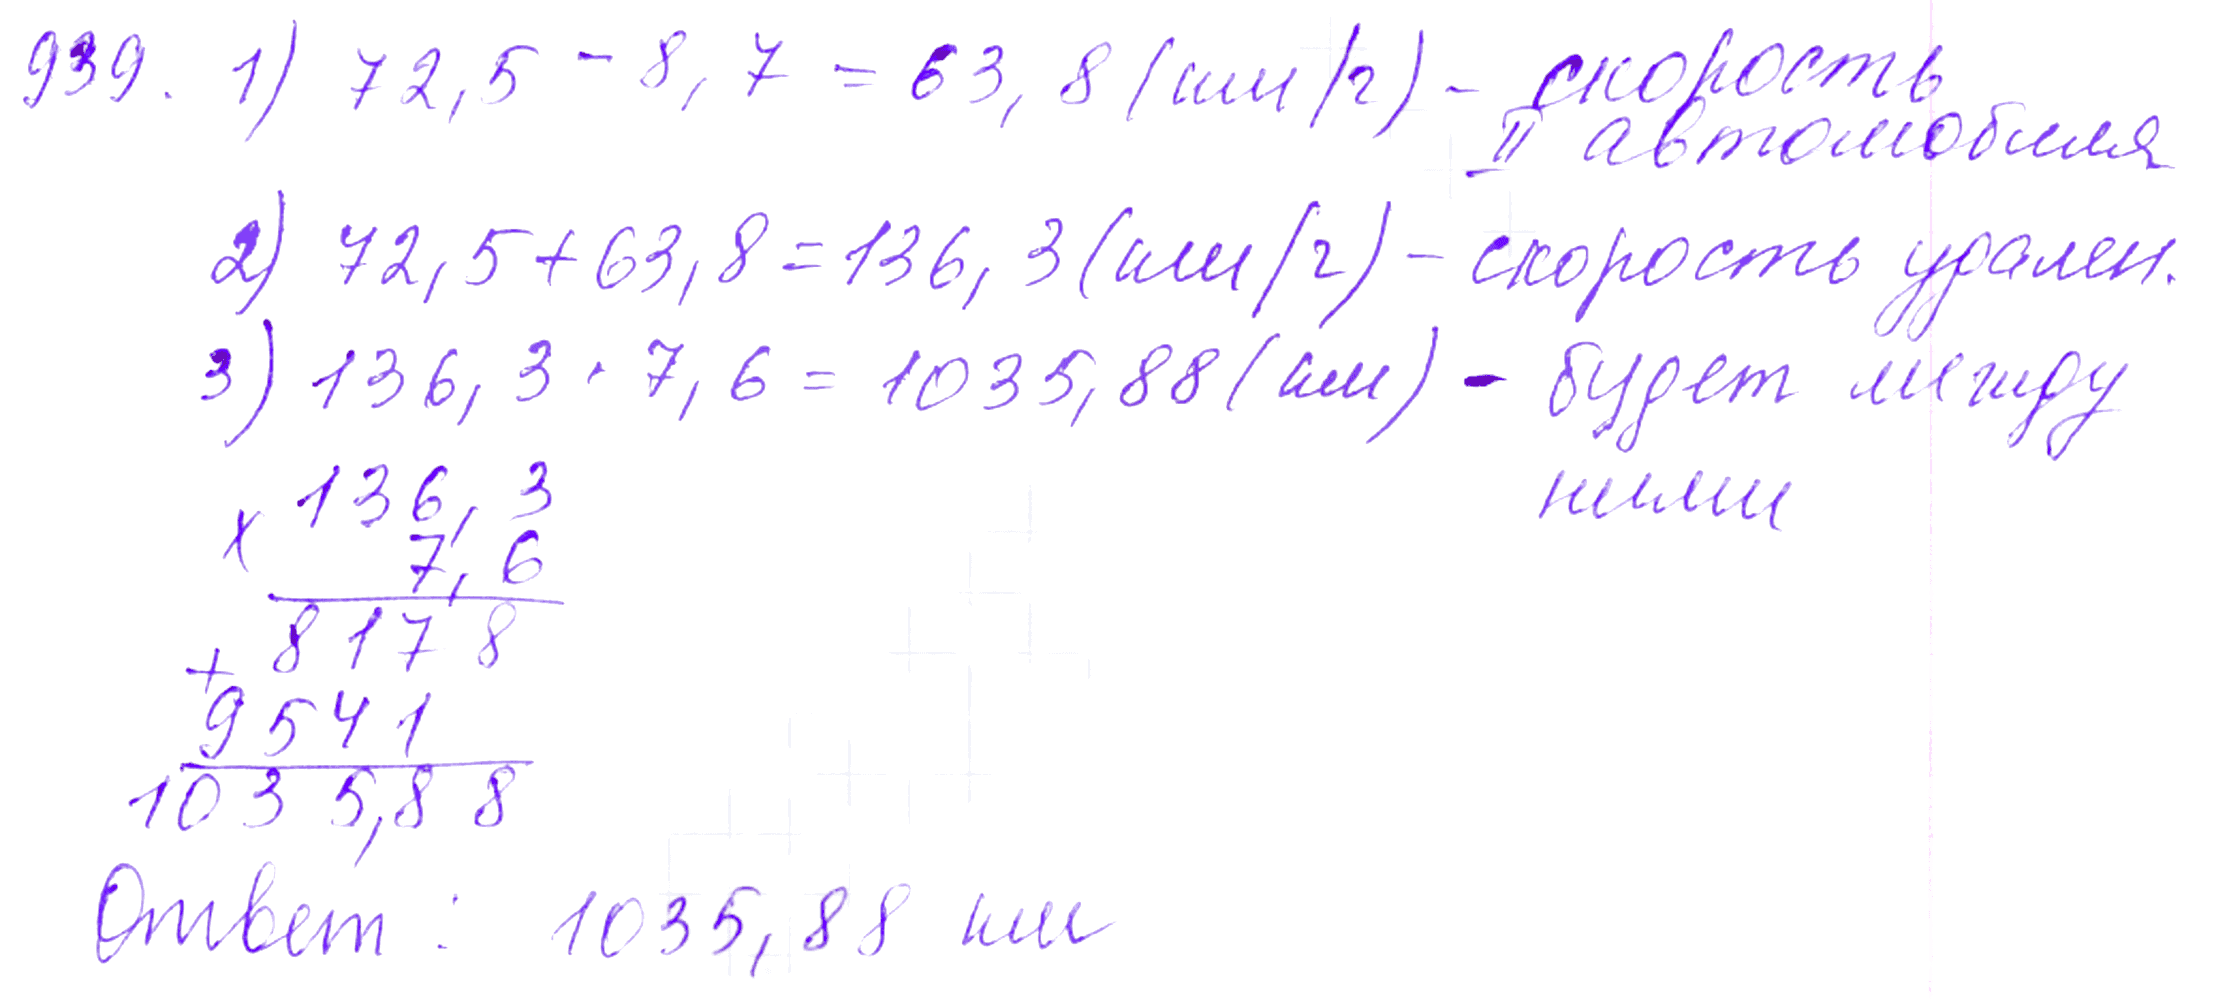 939. 1) 72,5 - 8,7 = 63,8 (км/г) - скорость
II автомобиля
2) 72,5 + 63,8 = 136,3 (км/г) - скорость удален.
3) 136,3 · 7,6 = 1035,88 (км) - будет между
ними
136,3
x
7,6
8178
+
9541
1035,88
Ответ: 1035,88 км